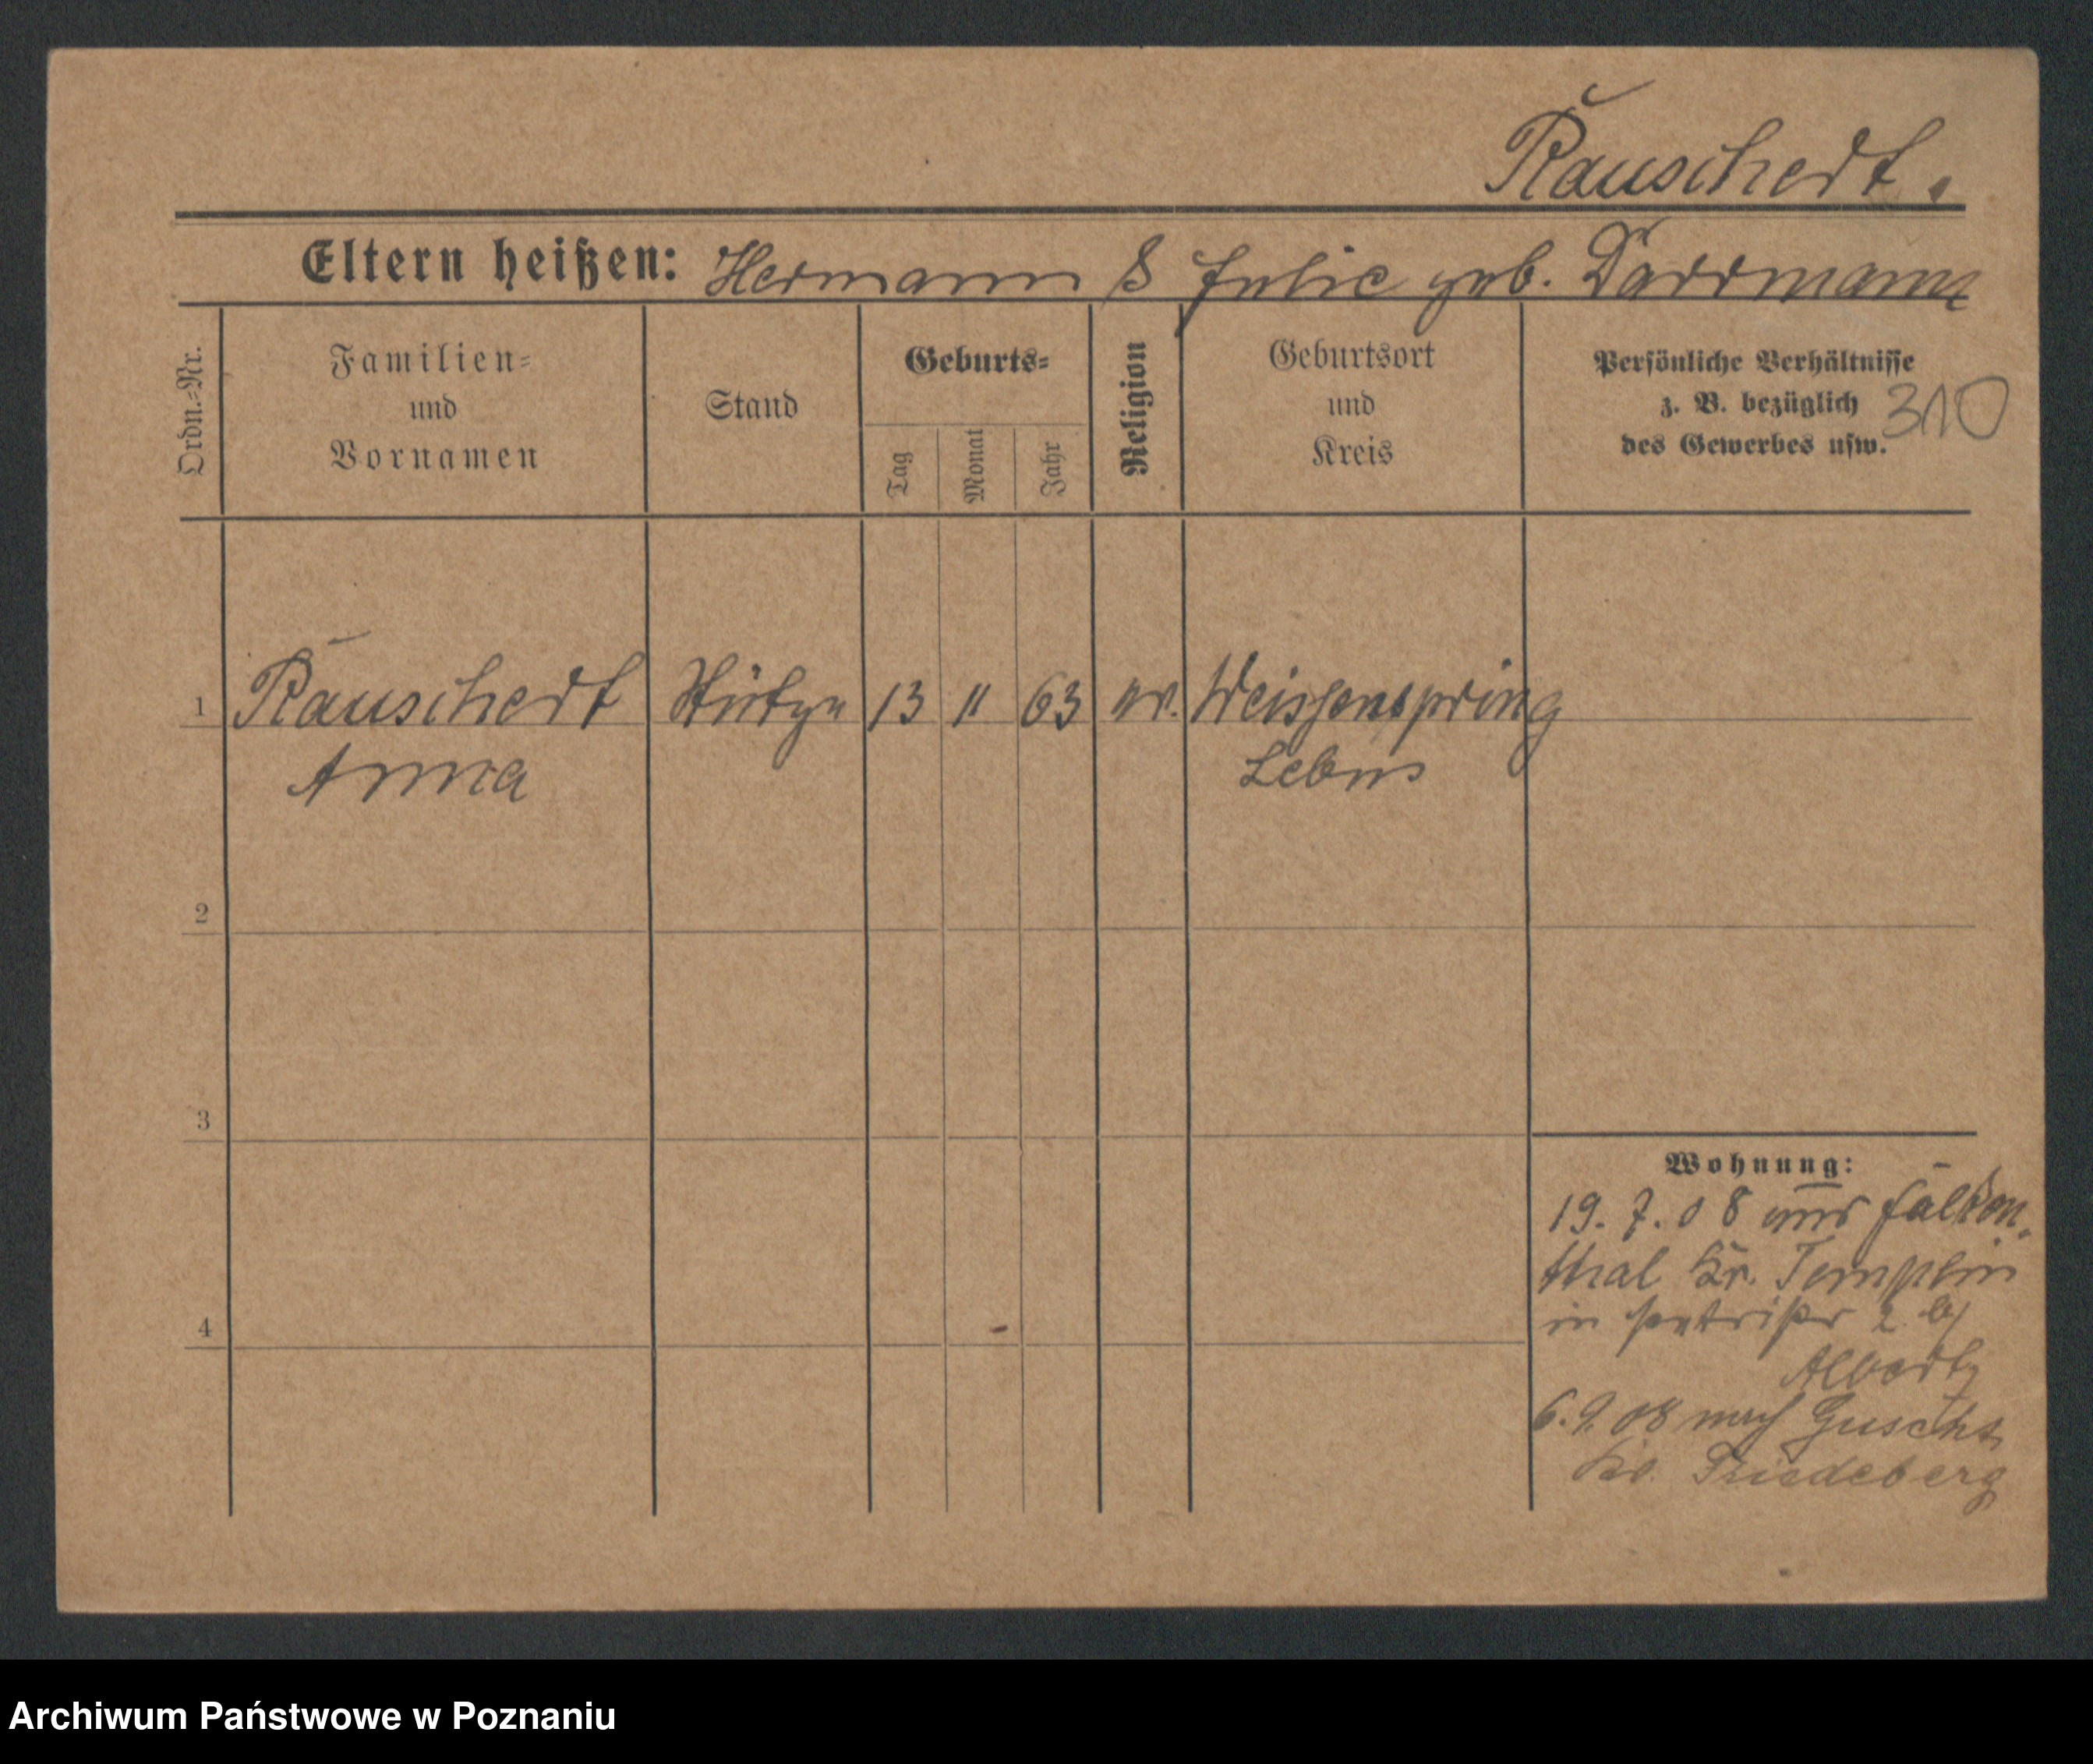 Rauschert.
Eltern heißen: Hermann & Julie geb. Darrmann
Ordn.-Nr.
Familien-
und
Vornamen
Stand
Geburts-
Tag
Monat
Jahr
Religion
Geburtsort
und
Kreis
Persönliche Verhältnisse
z. B. bezüglich
des Gewerbes usw.
310
1 Rauschert Stütze 13 11 63 ev. Weissenspring
Anna Lebus
2
3
4
Wohnung:
19. 7. 08 aus Falken-
thal Kr. Templin
in 2 b/
Albert
6. 9. 08 nach Guscht
Kr. Friedeberg
Archiwum Państwowe w Poznaniu